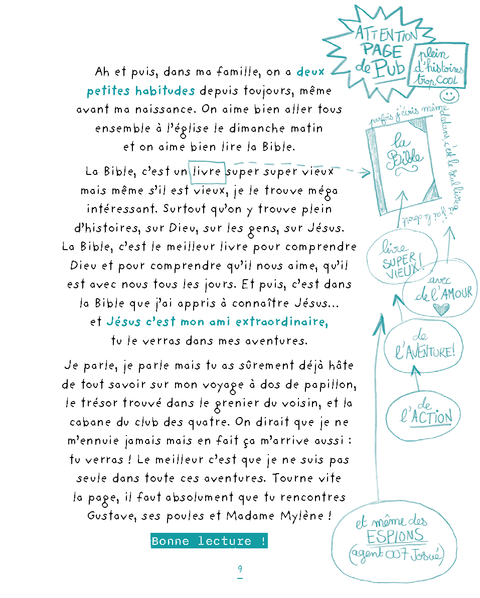 Ah et puis, dans ma famille, on a deux
petites habitudes depuis toujours, même
avant ma naissance. On aime bien aller tous
ensemble à l'église le dimanche matin
et on aime bien lire la Bible.
La Bible, c'est un livre super super vieux
mais même s'il est vieux, je le trouve méga
intéressant. Surtout qu'on y trouve plein
d'histoires, sur Dieu, sur les gens, sur Jésus.
La Bible, c'est le meilleur livre pour comprendre
Dieu et pour comprendre qu'il nous aime, qu'il
est avec nous tous les jours. Et puis, c'est dans
la Bible que j'ai appris à connaître Jésus...
et Jésus c'est mon ami extraordinaire,
tu le verras dans mes aventures.
Je parle, je parle mais tu as sûrement déjà hâte
de tout savoir sur mon voyage à dos de papillon,
le trésor trouvé dans le grenier du voisin, et la
cabane du club des quatre. On dirait que je ne
m'ennuie jamais mais en fait ça m'arrive aussi :
tu verras ! Le meilleur c'est que je ne suis pas
seule dans toute ces aventures. Tourne vite
la page, il faut absolument que tu rencontres
Gustave, ses poules et Madame Mylène !
Bonne lecture !
9
ATTENTION
PAGE
de PUB
plein
d'histoires
trop COOL
parfois j'écris même
dedans, c'est le seul livre
où j'ai le droit
la
Bible
livre
SUPER
VIEUX!
avec
de l'AMOUR
de
l'AVENTURE!
de
l'ACTION
et même des
ESPIONS
(agent 007 Josué)